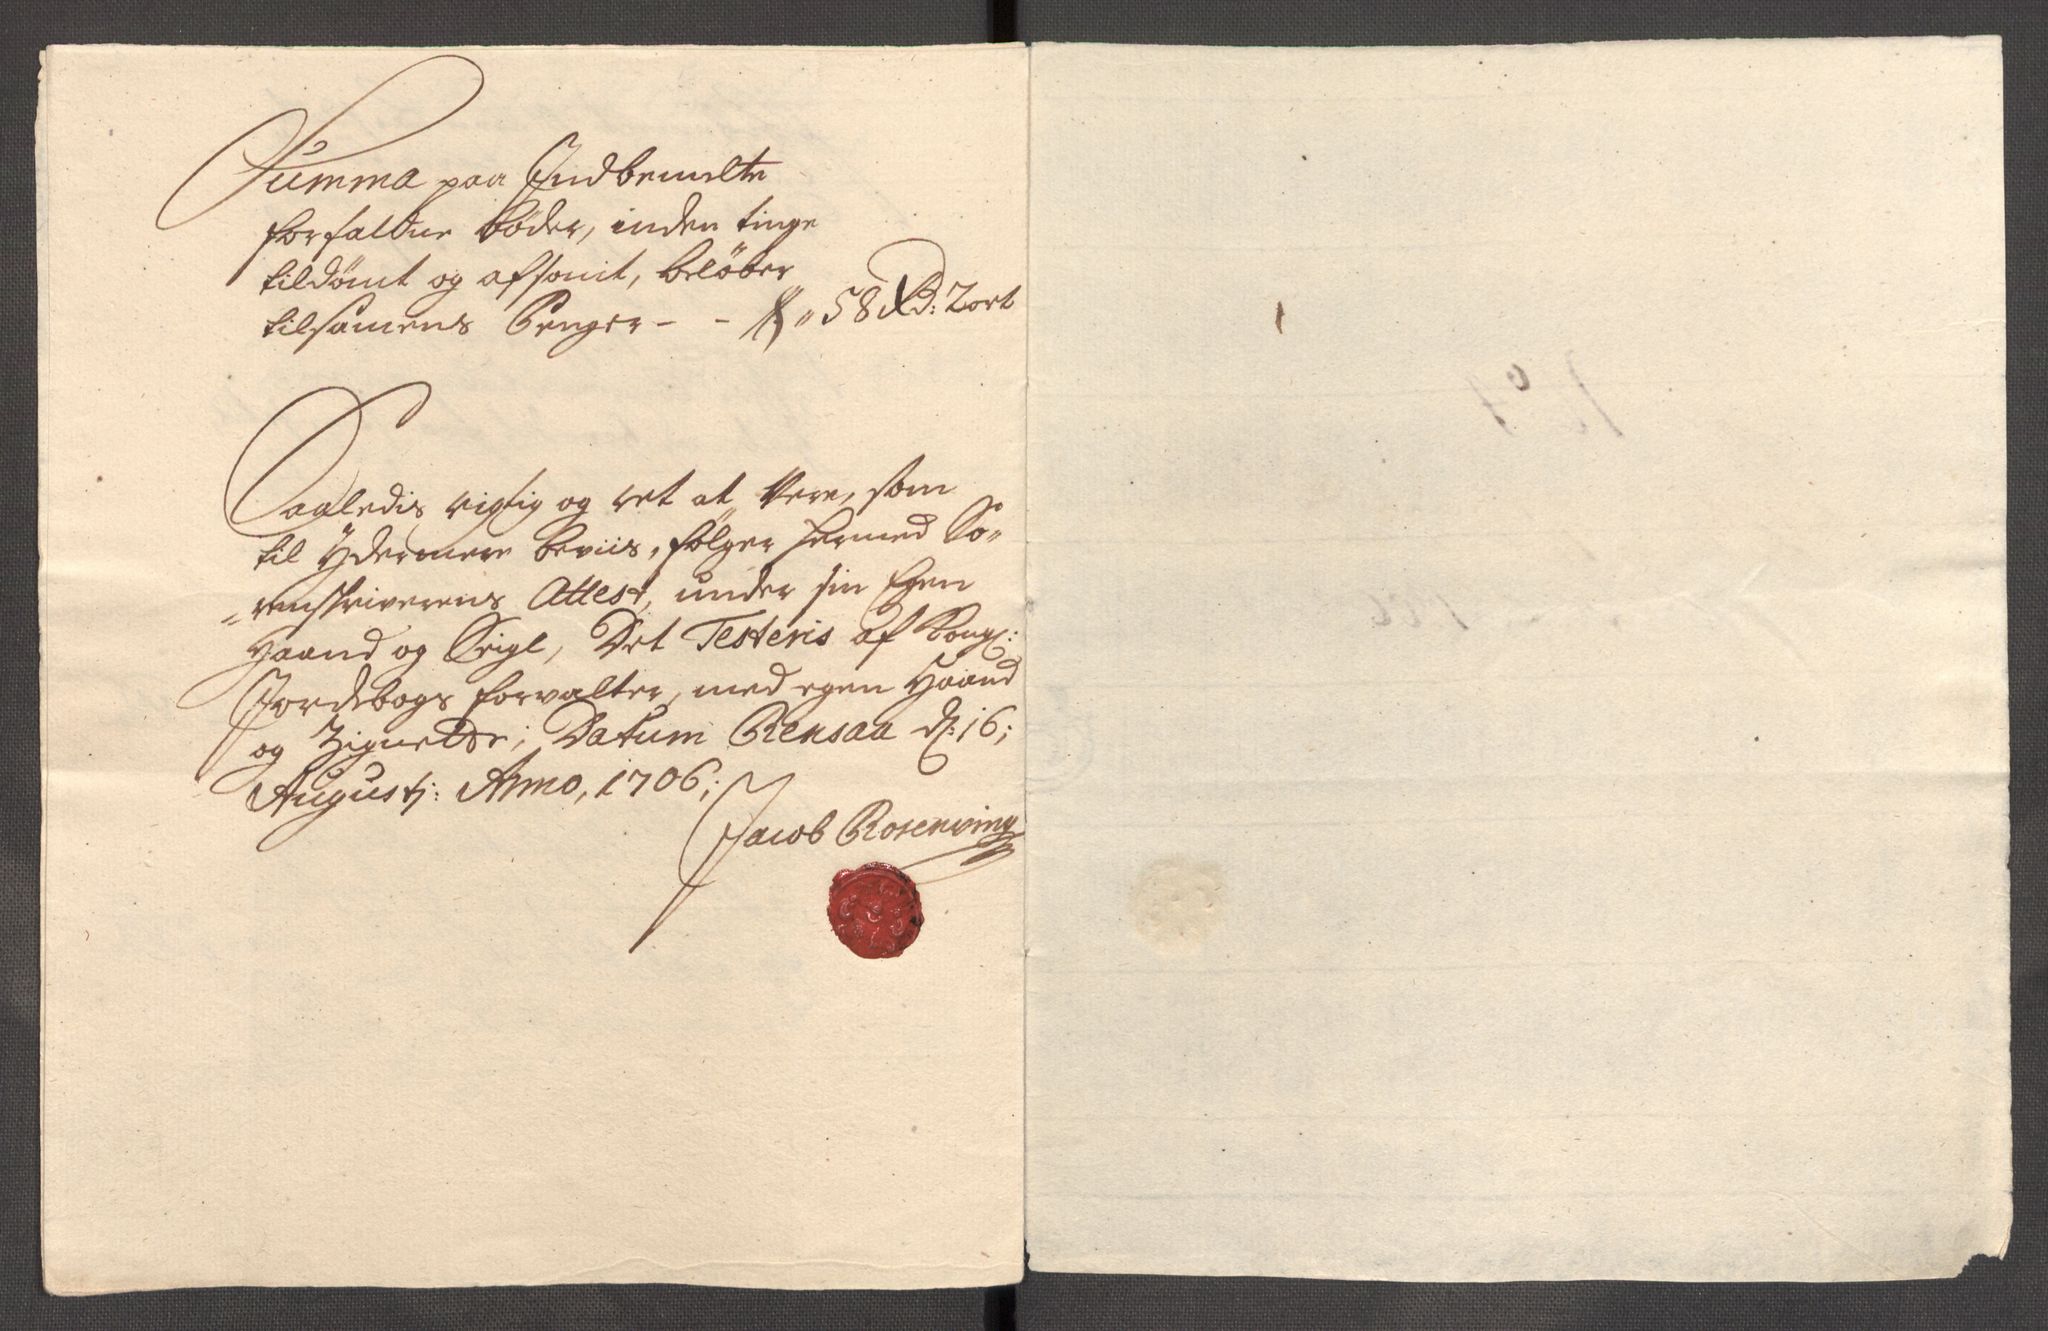 Summa paa Indbemelte
forfaldne bøder, inden tinge
tildømt og afsonit, beløber
tilsamens Penger - - 58 Rd: 2 ort
Saaledis rigtig og ret at Vere, som
til Ydermere beviis, følger hermed So-
renschriverens Attest, under sin Egen
Haand og Seigl, Det Testeris af Kongl:
Jordebogs forvalter, med egen Haand
og Zignette; Datum Rensaa d: 16;
Augustj: Anno, 1706;
Jacob Rosenwing